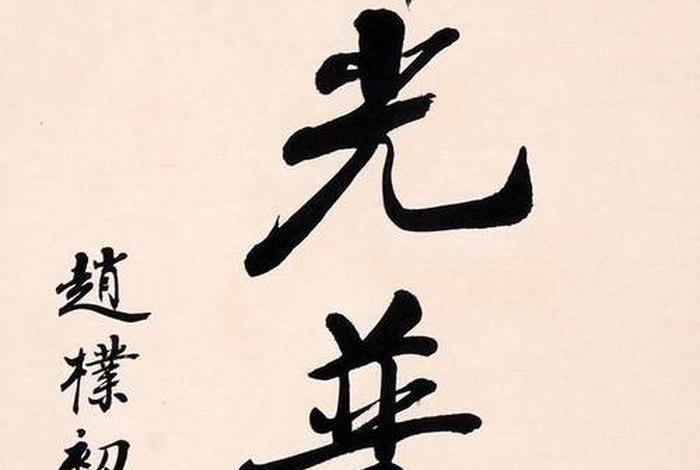 光華
趙樸初